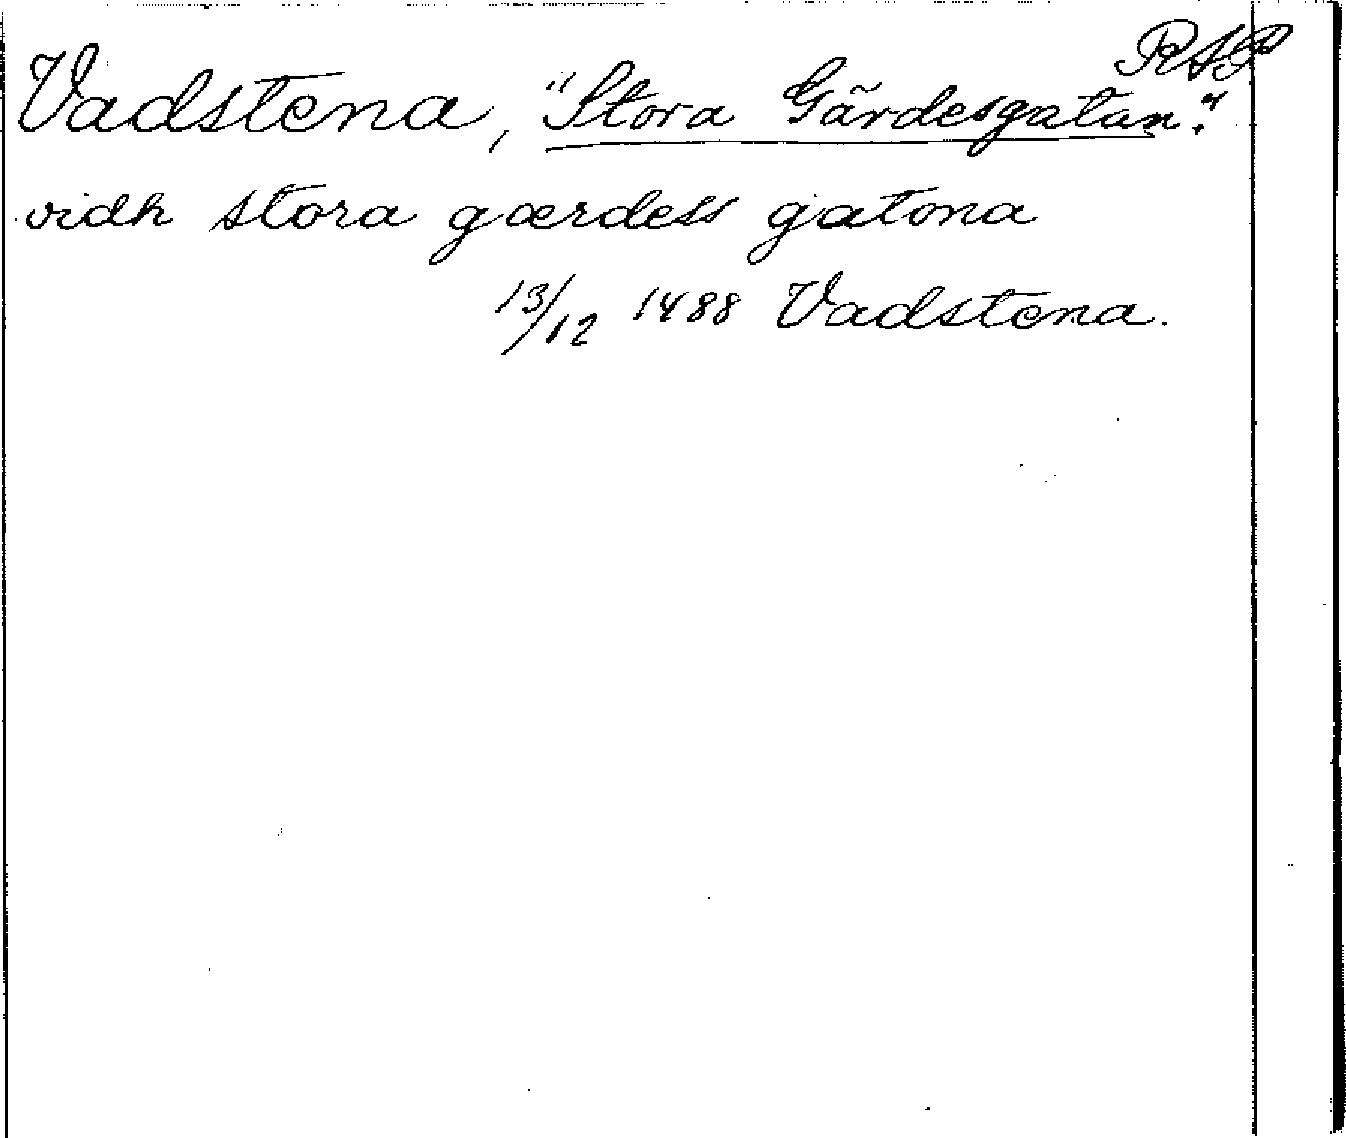 RAP
Vadstena, "Stora Gärdesgatan."
vidh stora gærdess gatona
13/12 1488 Vadstena.